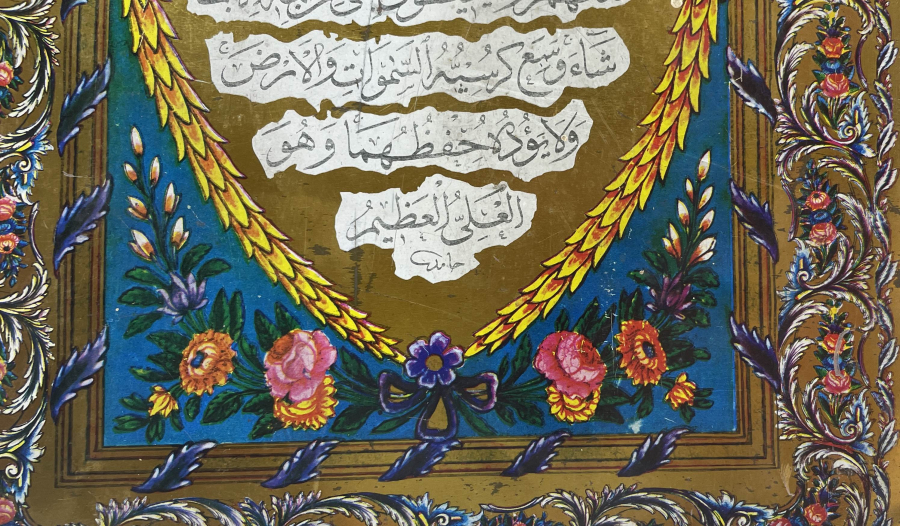 شَاءَ وَسِعَ كُرْسِيُّهُ السَّمٰوَاتِ وَالْاَرْضَ
وَلَا يَؤُدُهُ حِفْظُهُمَا وَهُوَ
الْعَلِىُّ الْعَظِيمُ
حامد